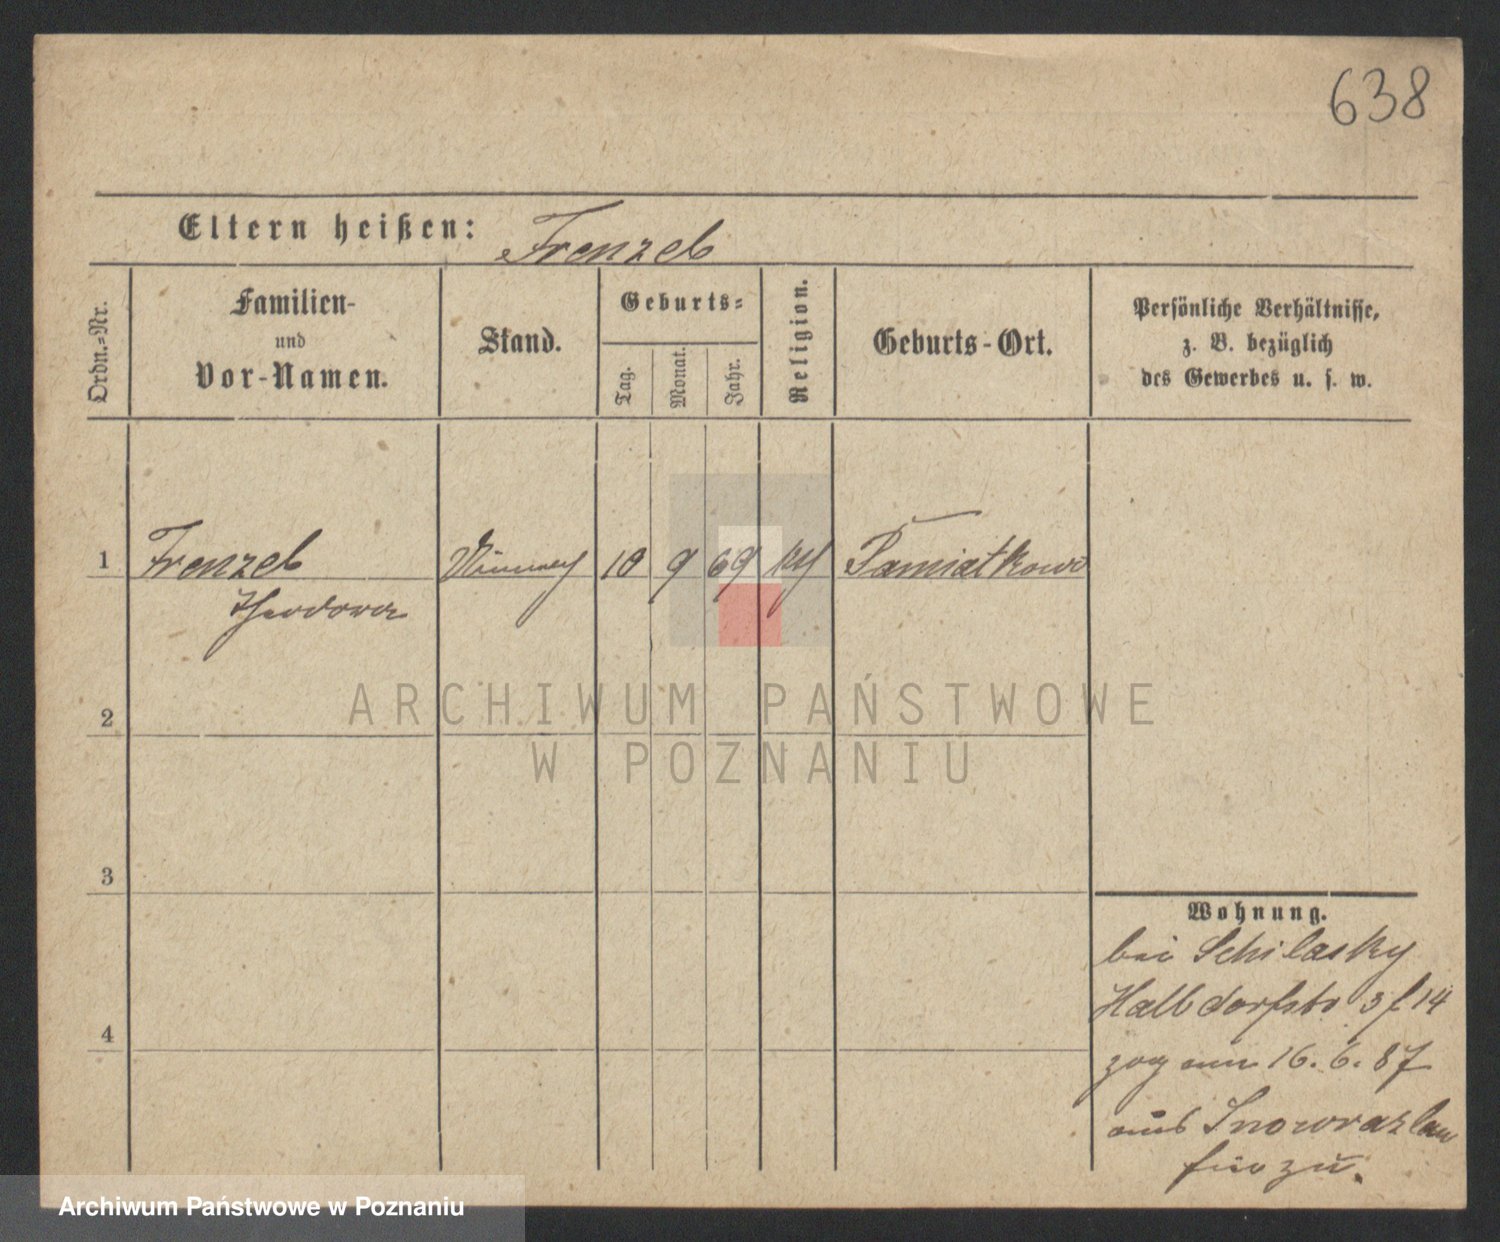 638
Eltern heißen: Frenzel
Ordn.-Nr.
Familien-
und
Vor-Namen.
Stand.
Geburts-
Tag.
Monat.
Jahr.
Religion.
Geburts-Ort.
Persönliche Verhältnisse,
z. B. bezüglich
des Gewerbes u. s. w.
1 Frenzel 10 9 69 Pamiatkowo
Theodora
ARCHIWUM PAŃSTWOWE
W POZNANIU
2
3
4
Wohnung.
bei Schilasky
Halbdorfstr 3 14
zog am 16. 6. 87
aus Inowrazlaw
hierzu.
Archiwum Państwowe w Poznaniu